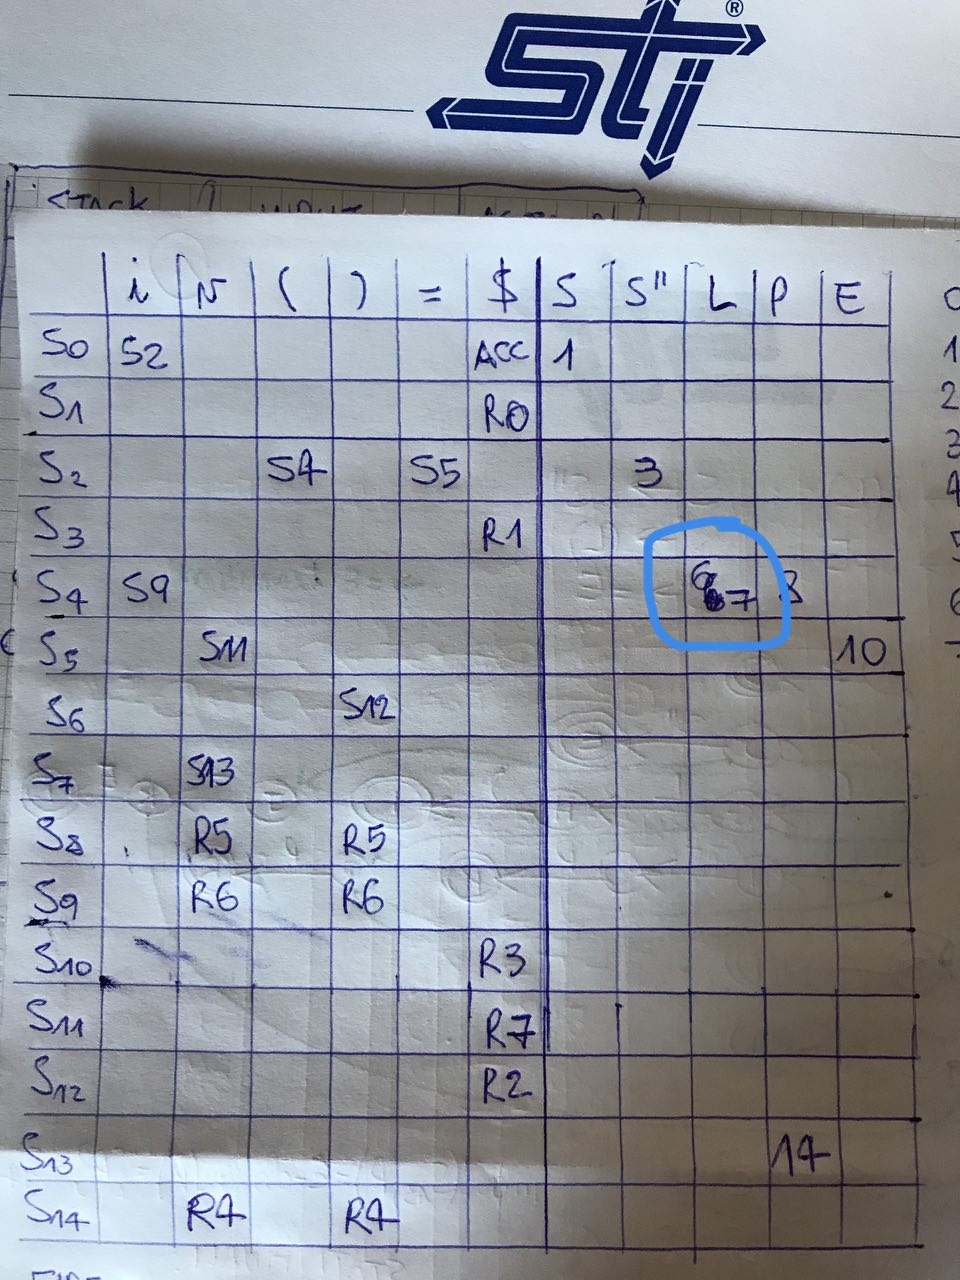 stj ®
STACK INPUT
i N ( ) = $ S S" L P E
S0 S2 ACC 1
S1 R0
S2 S4 S5 3
S3 R1
S4 S9 6 7
S5 S11 10
S6 S12
S7 S13
S8 R5 R5
S9 R6 R6
S10 R3
S11 R7
S12 R2
S13 14
S14 R4 R4
0
1
2
3
4
5
6